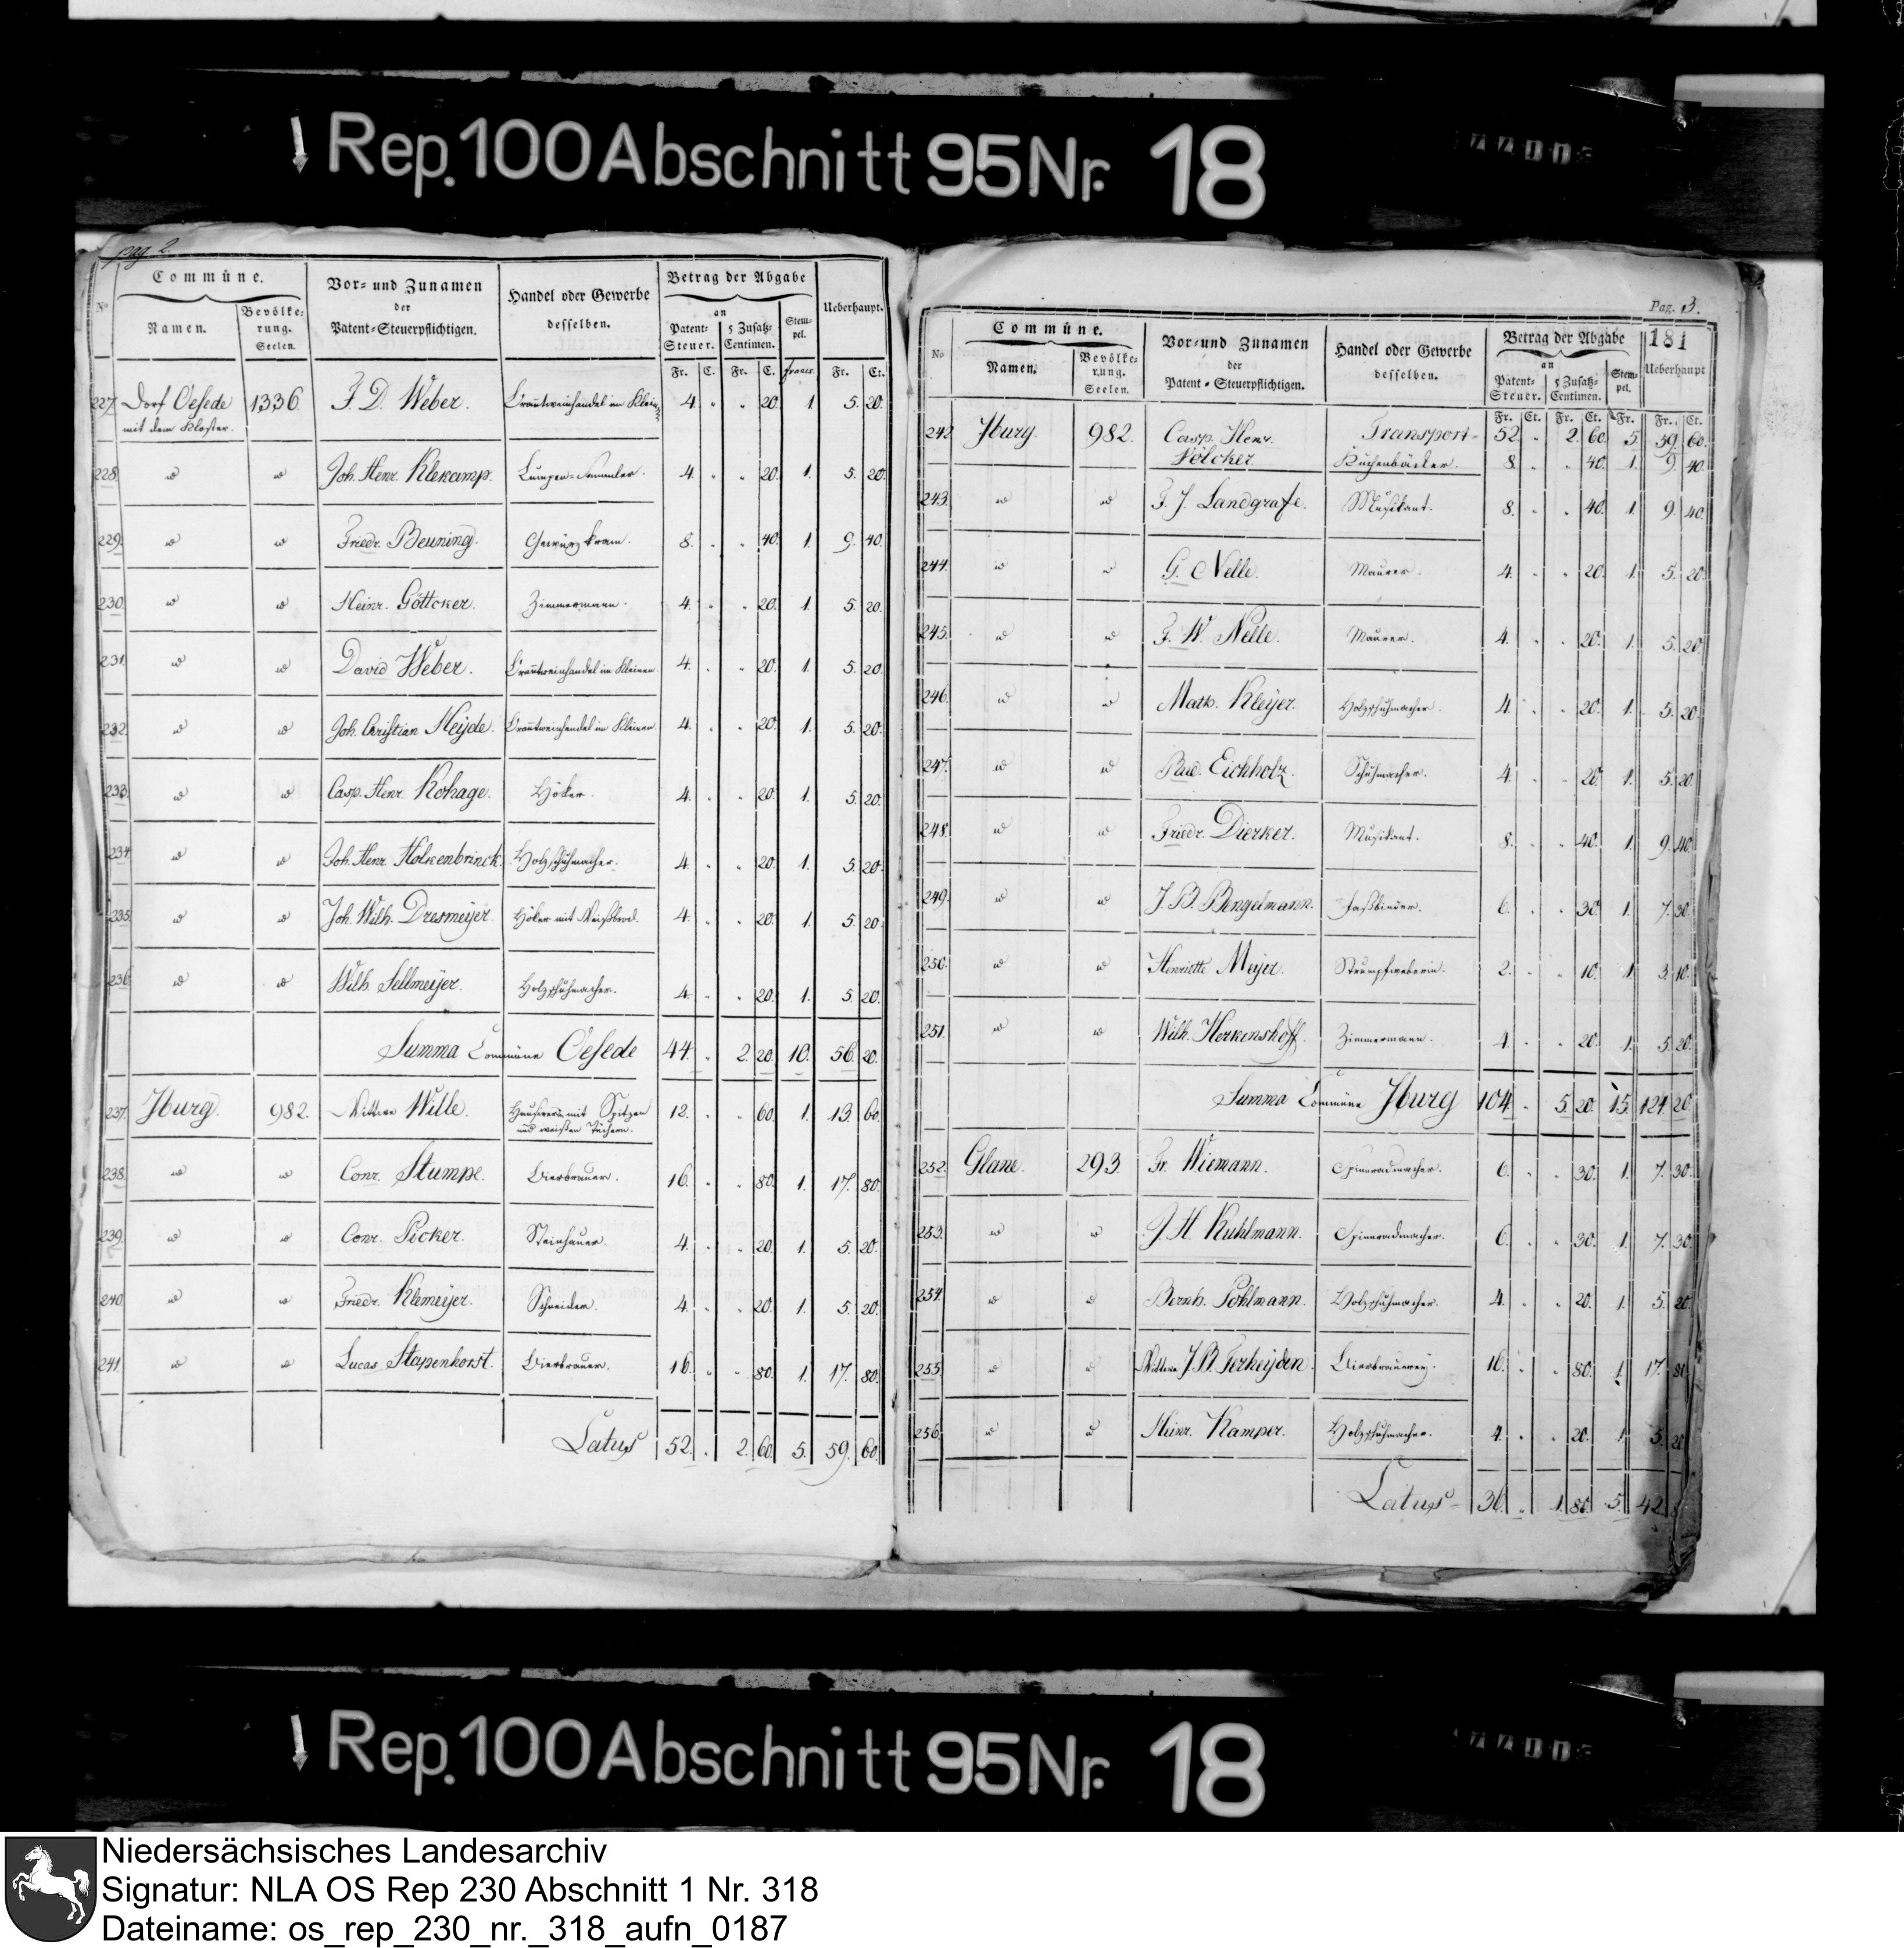 Rep. 100 Abschnitt 95 Nr. 18
pag 2.
No
Commüne.
Namen.
Bevölke-
rung.
Seelen.
Vor- und Zunamen
der
Patent-Steuerpflichtigen.
Handel oder Gewerbe
desselben.
Betrag der Abgabe
an
Patent-
Steuer.
5 Zusatz-
Centimen.
Stem-
pel.
Ueberhaupt.
Fr. C. Fr. C. francs. Fr. Ct.
227. Dorf Oesede 1336. F. D. Weber. Brañtweinhandel im Klein 4. " " 20. 1 5. 20.
mit dem Kloster.
228. " " Joh. Henr. Klekamp. Lumpen-Sammler. 4. " " 20. 1. 5. 20.
229. " " Friedr. Beuning. Gewürzkram. 8. " " 40. 1. 9. 40.
230. " " Heinr. Göttcker. Zimmermann. 4. " " 20. 1. 5. 20.
231. " " David Weber. Brañtweinhandel im Kleinen 4. " " 20. 1. 5. 20.
232. " " Joh. Christian Heyde. Brañtweinhandel im Kleinen 4. " " 20. 1. 5. 20.
233. " " Casp. Henr. Kohage. Höker. 4. " " 20. 1. 5. 20.
234. " " Joh. Henr. Holkenbrinck. Holzschuhmacher. 4. " " 20. 1. 5. 20.
235. " " Joh. Wilh. Dresmeyer. Höker mit Weißbrod. 4. " " 20. 1. 5. 20.
236. " " Wilh. Sellmeyer. Holzschuhmacher. 4. " " 20. 1. 5. 20.
Summa Commüne Oesede 44. " 2. 20. 10. 56. 20.
237. Jburg. 982. Wittwe Wille. Hausirers mit Spitzen 12. " " 60. 1. 13. 60.
und weißen Tüchern.
238. " " Conr. Stumpe. Bierbrauer. 16. " " 80. 1. 17. 80.
239. " " Conr. Picker. Steinhauer. 4. " " 20. 1. 5. 20.
240. " " Friedr. Klemeyer. Schneider. 4. " " 20. 1. 5. 20.
241. " " Lucas Stapenhorst. Bierbrauer. 16. " " 80. 1. 17. 80.
Latus 52. " 2. 60. 5. 59. 60.
Pag. 3.
181
No
Commüne.
Namen.
Bevölke-
rung.
Seelen.
Vor- und Zunamen
der
Patent-Steuerpflichtigen.
Handel oder Gewerbe
desselben.
Betrag der Abgabe
an
Patent-
Steuer.
5 Zusatz-
Centimen.
Stem-
pel.
Ueberhaupt
Fr. Ct. Fr. Ct. Fr. Fr. Ct.
Transport- 52. " 2. 60. 5. 59. 60.
242. Jburg. 982. Casp. Henr.
Völcker. Kuchenbäcker. 8. " " 40. 1. 9. 40.
243. " " F. J. Landgrafe. Musikant. 8. " " 40. 1. 9. 40.
244. " " G. Nelle. Maurer. 4. " " 20. 1. 5. 20.
245. " " F. W. Nelle. Maurer. 4. " " 20. 1. 5. 20.
246. " " Math. Kleyer. Holzschuhmacher. 4. " " 20. 1. 5. 20.
247. " " Rud. Eichholz. Schuhmacher. 4. " " 20. 1. 5. 20.
248. " " Friedr. Dierker. Musikant. 8. " " 40. 1. 9. 40.
249. " " J. B. Bengelmann. Faßbinder. 6. " " 30. 1. 7. 30.
250. " " Henriette Meyer. Strumpfweberin. 2. " " 10. 1. 3. 10.
251. " " Wilh. Herkenshoff. Zimmermann. 4. " " 20. 1. 5. 20.
Summa Commüne Jburg 104. " 5. 20. 15. 124. 20.
252. Glane. 293. Fr. Wiemann. Spinnradmacher. 6. " " 30. 1. 7. 30.
253. " " J. H. Kuhlmann. Spinnradmacher. 6. " " 30. 1. 7. 30.
254. " " Bernh. Pohlmann. Holzschuhmacher. 4. " " 20. 1. 5. 20.
255. " " Wittwe J. B. Terheyden. Bierbrauerey. 16. " " 80. 1. 17. 80
256. " " Heinr. Kamper. Holzschuhmacher. 4. " " 20. 1. 5. 20
Latus 36. " 1. 80. 5. 42.
Rep. 100 Abschnitt 95 Nr. 18
Niedersächsisches Landesarchiv
Signatur: NLA OS Rep 230 Abschnitt 1 Nr. 318
Dateiname: os_rep_230_nr._318_aufn_0187